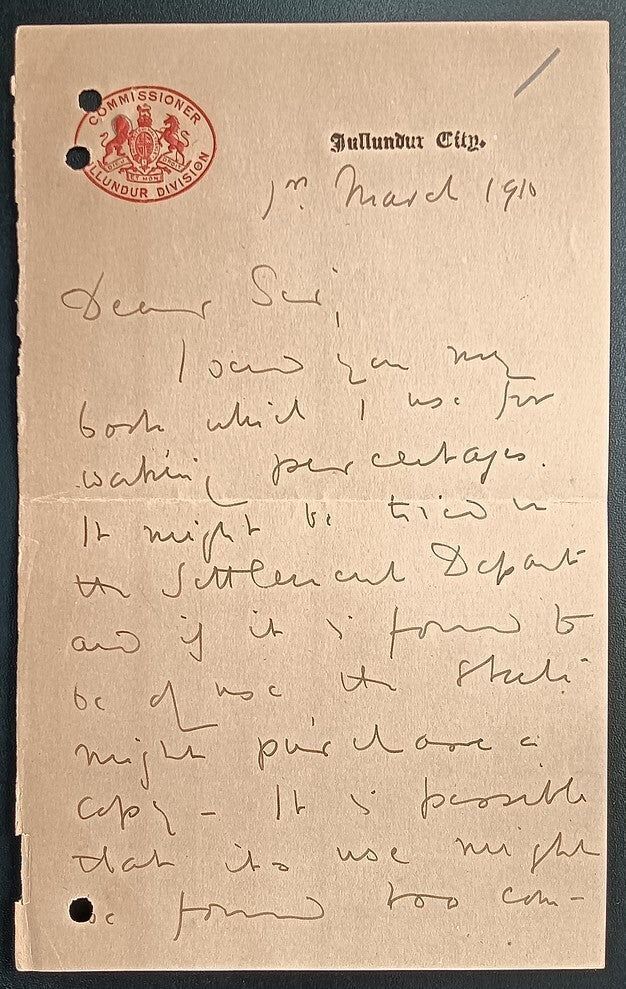 COMMISSIONER
LLUNDUR DIVISION
DIEU ET MON DROIT
Jullundur City.
1st March 1910
Dear Sir,
I send you my
book which I use for
working percentages.
It might be tried in
the Settlement Depart
and if it is found to
be of use the State
might purchase a
copy - It is possible
that its use might
be found too com-